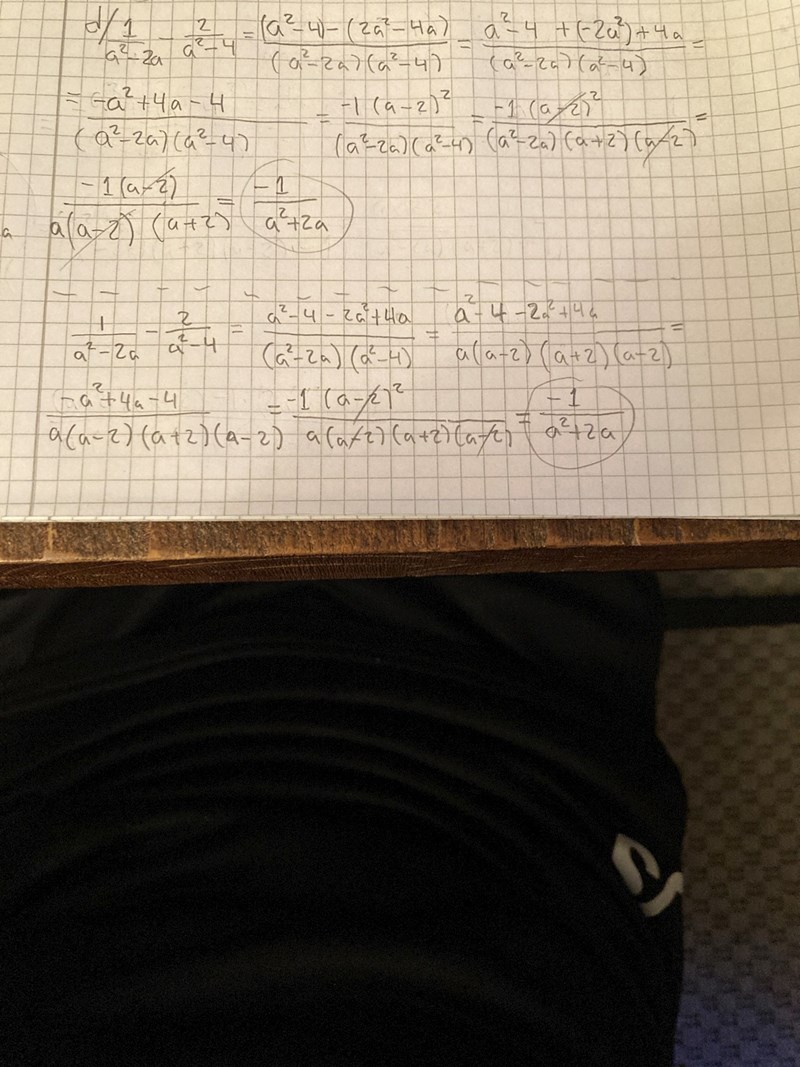 d/ 1/(a²-2a) - 2/(a²-4) = ((a²-4)-(2a²-4a))/((a²-2a)(a²-4)) = (a²-4+(-2a²)+4a)/((a²-2a)(a²-4)) =
= (-a²+4a-4)/((a²-2a)(a²-4)) = (-1(a-2)²)/((a²-2a)(a²-4)) = (-1(a-2)²)/((a²-2a)(a+2)(a-2)) =
(-1(a-2))/(a(a-2)(a+2)) = (-1)/(a²+2a)
1/(a²-2a) - 2/(a²-4) = (a²-4-2a²+4a)/((a²-2a)(a²-4)) = (a²-4-2a²+4a)/(a(a-2)(a+2)(a-2)) =
(-a²+4a-4)/(a(a-2)(a+2)(a-2)) = (-1(a-2)²)/(a(a-2)(a+2)(a-2)) = (-1)/(a²+2a)